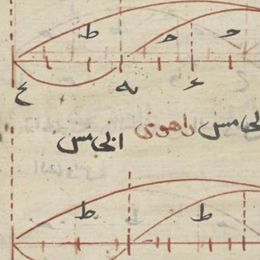 ح ح ط
يه ح
لخامس راهوى الخامس
ط ط